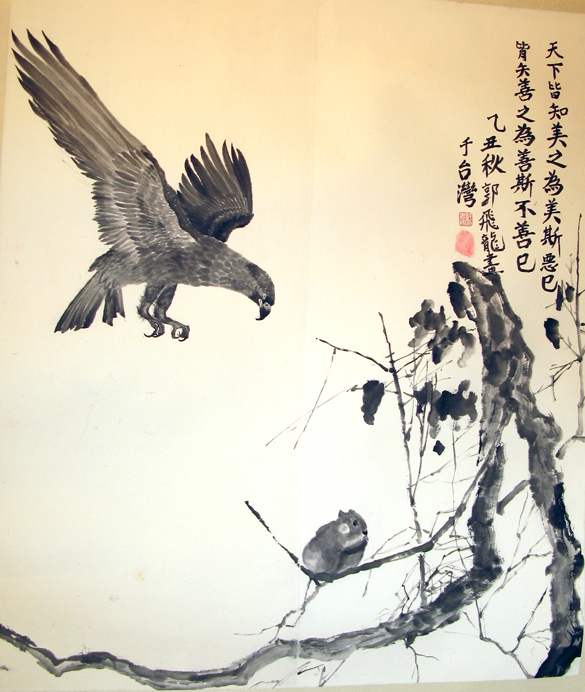 天下皆知美之為美斯惡已
皆矢善之為善斯不善已
乙丑秋郭飛龍畫
于台灣